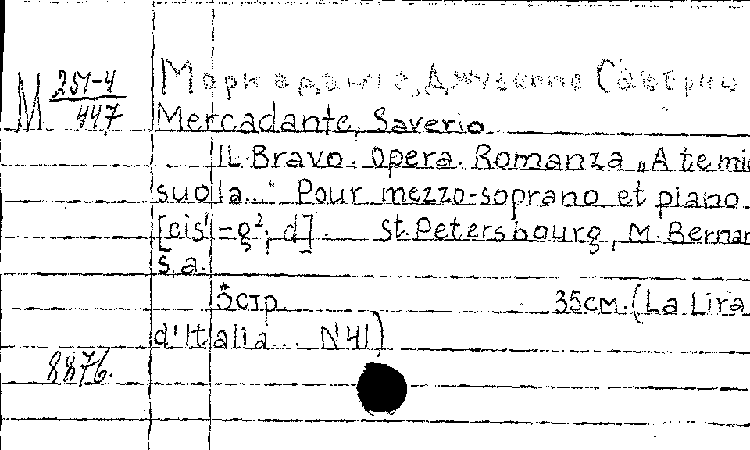 М 251-4
447
Меркаданте, Джузеппе Саверио
Mercadante, Saverio
IL Bravo. Opera. Romanza „A te mie
suola..." Pour mezzo-soprano et piano.
[cis¹-g², d]. St. Petersbourg, M. Bernar
s.a.
5стр. 35см. (La Lira
d'Italia... N41)
8876.